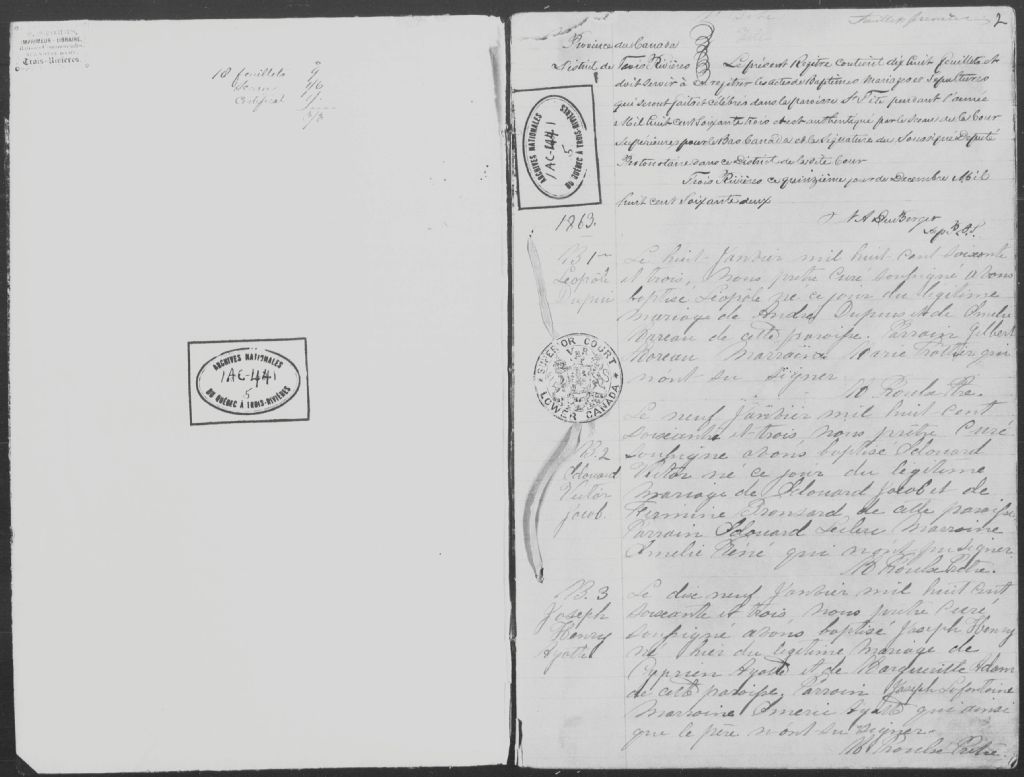 IMPRIMEUR-LIBRAIRE,
Trois-Rivières.
18 feuillets 9
Certificat
ARCHIVES NATIONALES
1AC-441
5
DU QUÉBEC À TROIS-RIVIÈRES
2
Province du Canada
District de Trois Rivières
Le présent Régitre Contient dix huit feuillets et
doit servir à Enregitrer les actes de Baptêmes Mariages et Sépultures
qui seront faits et célébrés dans la paroisse St Tite pendant l'année
Mil huit cent Soixante trois et est authentiqué par le Sceau de la Cour
Supérieure pour le Bas Canada et la Signature du Soussigné Député
Protonotaire dans ce District de la dite Cour
Trois Rivières ce quinzième jour de Decembre Mil
huit cent Soixante deux
DuBerger
ARCHIVES NATIONALES
1AC-441
5
DU QUÉBEC À TROIS-RIVIÈRES
1863.
SUPERIOR COURT
LOWER CANADA
B 1er
Léopôle
Dupui
Le huit Janvier mil huit cent soixante
et trois, Nous prêtre Curé soussigné avons
baptisé Léopôle né ce jour du légitime
mariage de André Dupuis et de Amelie
Moreau de cette paroisse. Parrain Gilbert
Moreau Marraine Marie Trottier qui
n'ont su signer
B. 2
Edouard
Victor
Jacob.
Le neuf Janvier mil huit cent
soixante et trois nous prêtre Curé
soussigné avons baptisé Edouard
Victor né ce jour du légitime
mariage de Edouard Jacob et de
Firmine Bronsard de cette paroisse
Parrain Edouard Leclerc Marraine
Amelie René qui n'ont pu signer.
B. 3
Joseph
Henry
Ayotte
Le dix neuf Janvier mil huit cent
soixante et trois, nous prêtre Curé,
soussigné avons baptisé Joseph Henry
né hier du légitime mariage de
Cyprien Ayotte et de Marguerite Adam
de cette paroisse, Parrain Joseph Lafontaine
Marraine Emerie Ayotte qui ainsi
que le père n'ont su signer.